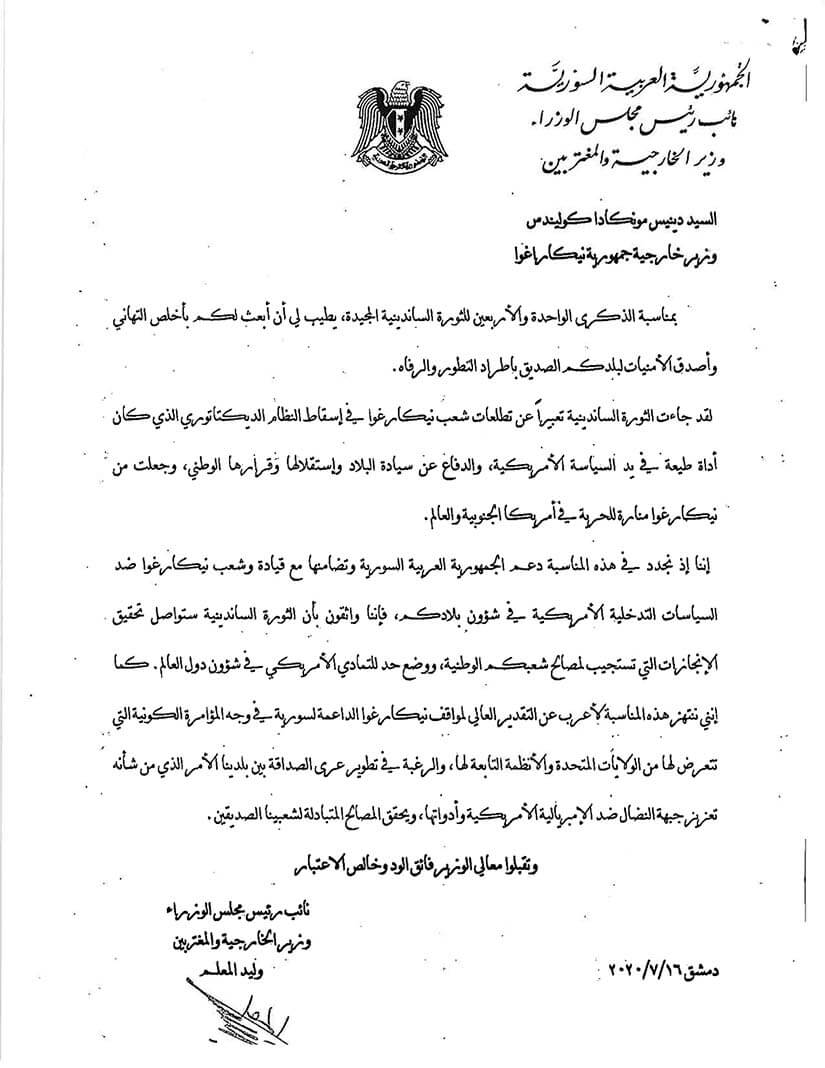 الجمهورية العربية السورية
نائب رئيس مجلس الوزراء
وزير الخارجية والمغتربين
السيد دينيس مونكادا كوليندس
وزير خارجية جمهورية نيكاراغوا
بمناسبة الذكرى الواحدة والأربعين للثورة الساندينية المجيدة، يطيب لي أن أبعث لكم بأخلص التهاني
وأصدق الأمنيات لبلدكم الصديق باطراد التطور والرفاه.
لقد جاءت الثورة الساندينية تعبيراً عن تطلعات شعب نيكارغوا في إسقاط النظام الديكتاتوري الذي كان
أداة طيعة في يد السياسة الأمريكية، والدفاع عن سيادة البلاد وإستقلالها وقرارها الوطني، وجعلت من
نيكارغوا منارة للحرية في أمريكا الجنوبية والعالم.
إننا إذ نجدد في هذه المناسبة دعم الجمهورية العربية السورية وتضامنها مع قيادة وشعب نيكارغوا ضد
السياسات التدخلية الأمريكية في شؤون بلادكم، فإننا واثقون بأن الثورة الساندينية ستواصل تحقيق
الإنجازات التي تستجيب لمصالح شعبكم الوطنية، ووضع حد للتمادي الأمريكي في شؤون دول العالم. كما
إنني ننتهز هذه المناسبة لأعرب عن التقدير العالي لمواقف نيكارغوا الداعمة لسورية في وجه المؤامرة الكونية التي
تتعرض لها من الولايات المتحدة والأنظمة التابعة لها، والرغبة في تطوير عرى الصداقة بين بلدينا الأمر الذي من شأنه
تعزيز جبهة النضال ضد الإمبريالية الأمريكية وأدواتها، ويحقق المصالح المتبادلة لشعبينا الصديقين.
وتقبلوا معالي الوزير فائق الود وخالص الاعتبار
نائب رئيس مجلس الوزراء
وزير الخارجية والمغتربين
وليد المعلم
دمشق ٢٠٢٠/٧/١٦